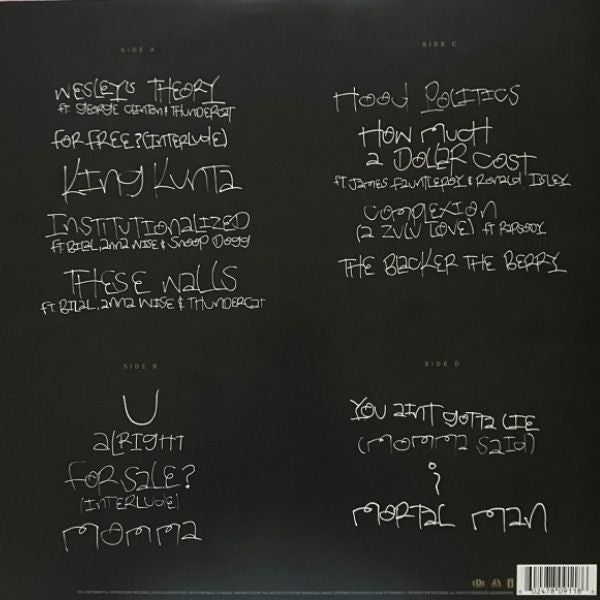 SIDE A
WESLEY'S THEORY
FT GEORGE CLINTON & THUNDERCAT
FOR FREE? (INTERLUDE)
KING KUNTA
INSTITUTIONALIZED
FT BILAL, ANNA WISE & SNOOP DOGG
THESE WALLS
FT. BILAL, ANNA WISE & THUNDERCAT
SIDE B
U
ALRIGHT
FOR SALE?
(INTERLUDE)
MOMMA
SIDE C
HOOD POLITICS
HOW MUCH
A DOLLAR COST
FT. JAMES FAUNTLEROY & RONALD ISLEY
COMPLEXION
(A ZULU LOVE) FT RAPSODY
THE BLACKER THE BERRY
SIDE D
YOU AINT GOTTA LIE
(MOMMA SAID)
i
MORTAL MAN
02478 09118